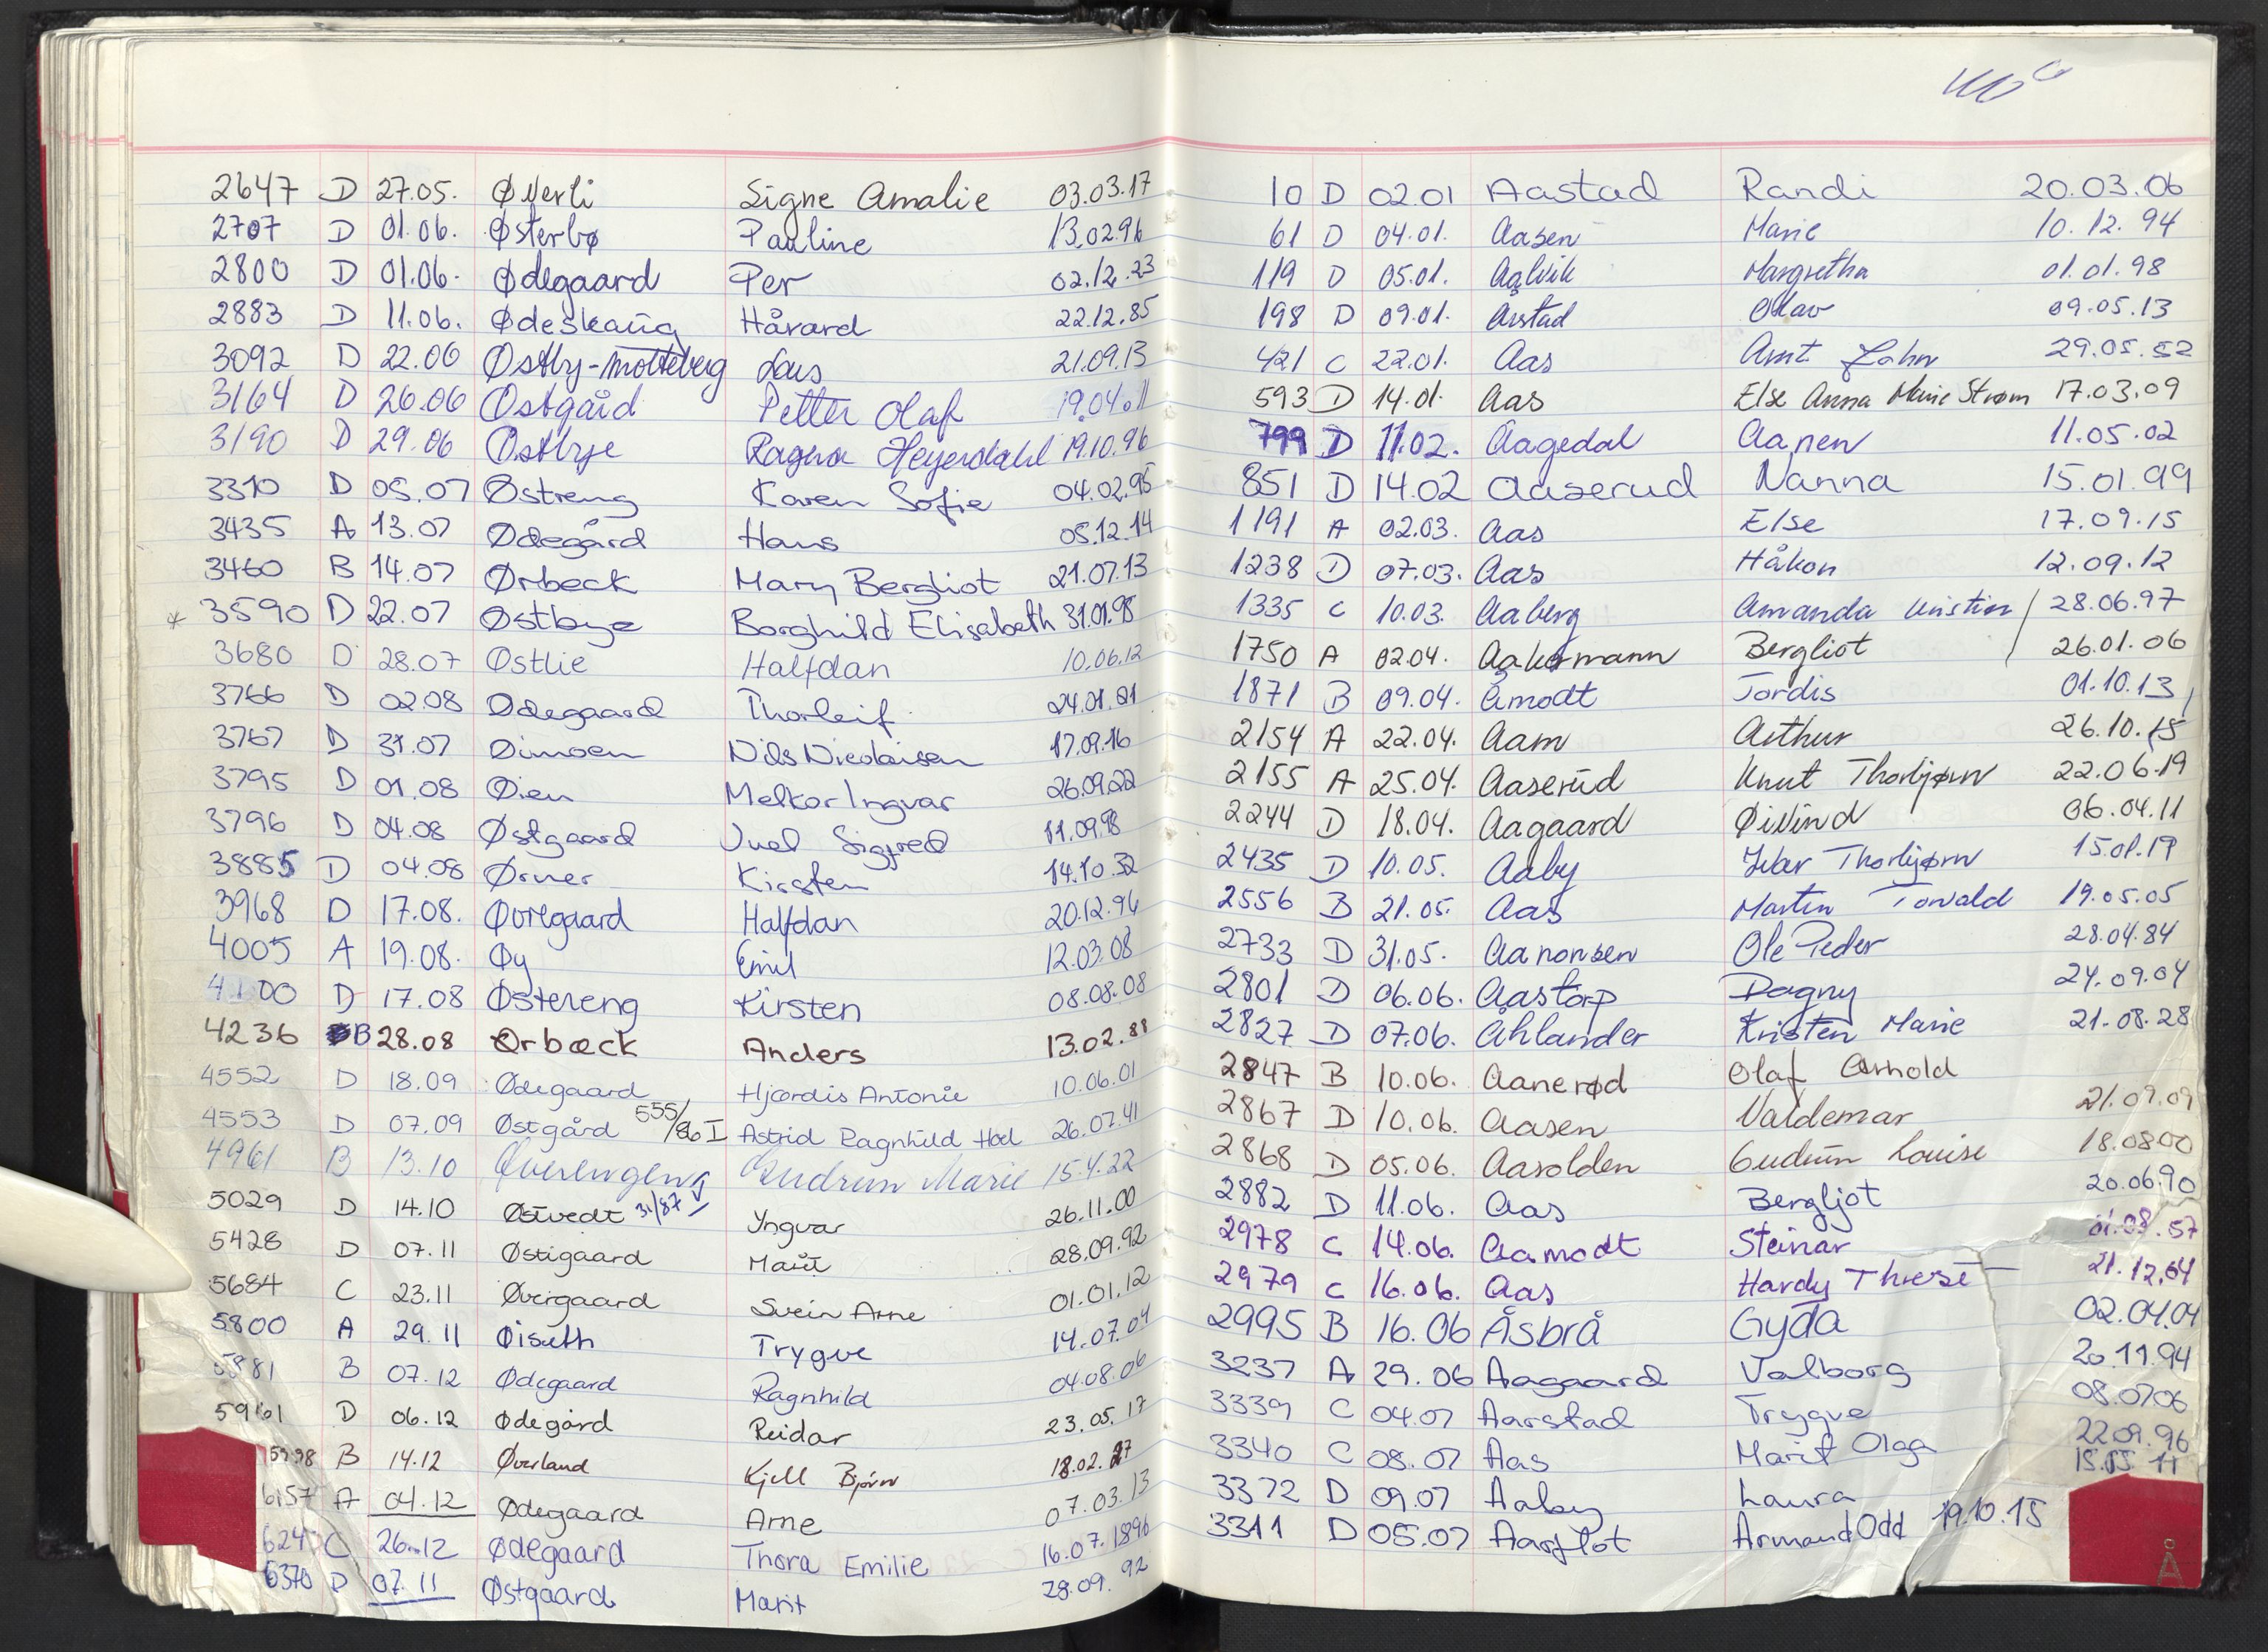 2647 D 27.05. Øverli Signe Amalie 03.03.17
2707 D 01.06. Østerbø Pauline 13.02.96
2800 D 01.06. Ødegaard Per 02.12.23
2883 D 11.06. Ødeskaug Håvard 22.12.85
3092 D 22.06 Østby- 21.09.13
3164 D 26.06 Østgård Petter Olaf 19.04.11
3190 D 29.06 Østbye Ragna Heyerdahl 19.10.96
3310 D 05.07 Østreng Karen Sofie 04.02.95
3435 A 13.07 Ødegård Hans 05.12.14
3460 B 14.07 Ørbeck Mary Bergliot 21.07.13
* 3590 D 22.07 Østbye Borghild Elisabeth 31.01.95
3680 D 28.07 Østlie Halfdan 10.06.12
3766 D 02.08 Ødegaard Thorleif 24.01.21
3767 D 31.07 Øimoen Nils Nicolaisen 17.09.16
3795 D 01.08 Øien Melkor Ingvar 26.09.22
3796 D 04.08 Østgaard Juel Sigfred 11.09.98
3885 D 04.08 Ørner Kirsten 14.10.32
3968 D 17.08. Øvregaard Halfdan 20.12.96
4005 A 19.08. Øy Emil 12.03.08
4100 D 17.08 Østereng Kirsten 08.08.08
4236 B 28.08 Ørbeck Anders 13.02.88
4552 D 18.09 Ødegaard Hjørdis Antonie 10.06.01
4553 D 07.09 Østgård 555/86 I Astrid Ragnhild Hoel 26.07.41
4961 B 13.10 Øverengeng Gudrun Marie 15.4.22
5029 D 14.10 Østvedt Yngvar 26.11.00
5428 D 07.11 Østigaard Marit 28.09.92
5684 C 23.11 Øvergaard Svein Arne 01.01.12
5800 A 29.11 Øiseth Trygve 14.07.04
5881 B 07.12 Ødegaard Ragnhild 04.08.06
5961 D 06.12 Ødegård Reidar 23.05.17
5998 B 14.12 Øverland Kjell Bjørn 18.02.27
6157 A 04.12 Ødegaard Arne 07.03.13
624 C 26.12 Ødegaard Thora Emilie 16.07.1896
6370 D 07.11 Østgaard Marit 28.09.92
10 D 02.01 Aastad Randi 20.03.06
61 D 04.01. Aasen Marie 10.12.94
119 D 05.01. Aalvik Margretha 01.01.98
198 D 09.01. Arstad Olav 09.05.13
421 C 22.01. Aas Arnt John 29.05.52
593 D 14.01. Aas Else Anna Marie Strøm 17.03.09
799 D 11.02. Aagedal Aanen 11.05.02
851 D 14.02 Aaserud Nanna 15.01.99
1191 A 02.03. Aas Else 17.09.15
1238 D 07.03. Aas Håkon 12.09.12
1335 C 10.03. Aaberg Amanda Kristine 28.06.97
1750 A 02.04. Aakermann Bergliot 26.01.06
1871 B 09.04. Åmodt Tordis 01.10.13
2154 A 22.04. Aam Arthur 26.10.15
2155 A 25.04. Aaserud Knut Thorbjørn 22.06.19
2244 D 18.04. Aagaard Øivind 06.04.11
2435 D 10.05. Aaby Ivar Thorbjørn 15.01.19
2556 B 21.05. Aas Martin Torvald 19.05.05
2733 D 31.05. Aanonsen Ole Peder 28.04.84
2801 D 06.06. Aastorp Dagny 24.09.04
2827 D 07.06. Åhlander Kristen Marie 21.08.28
2847 B 10.06. Aanerød Olaf Arnold
2867 D 10.06. Aasen Valdemar 21.09.09
2868 D 05.06. Aasolden Gudrun Louise 18.08.00
2882 D 11.06. Aas Bergljot 20.06.90
2978 C 14.06. Aamodt Steinar 01.08.57
2979 C 16.06. Aas Hardy 21.12.04
2995 B 16.06 Åsbrå Gyda 02.04.04
3237 A 29.06 Aagaard Valborg 20.11.94
3339 C 04.07 Aarstad Trygve 08.07.06
3340 C 08.07 Aas Marit Olga 22.09.96
3372 D 09.07 Aaby Laura
3311 D 05.07 Aarflot Armand Odd 19.10.15
Å